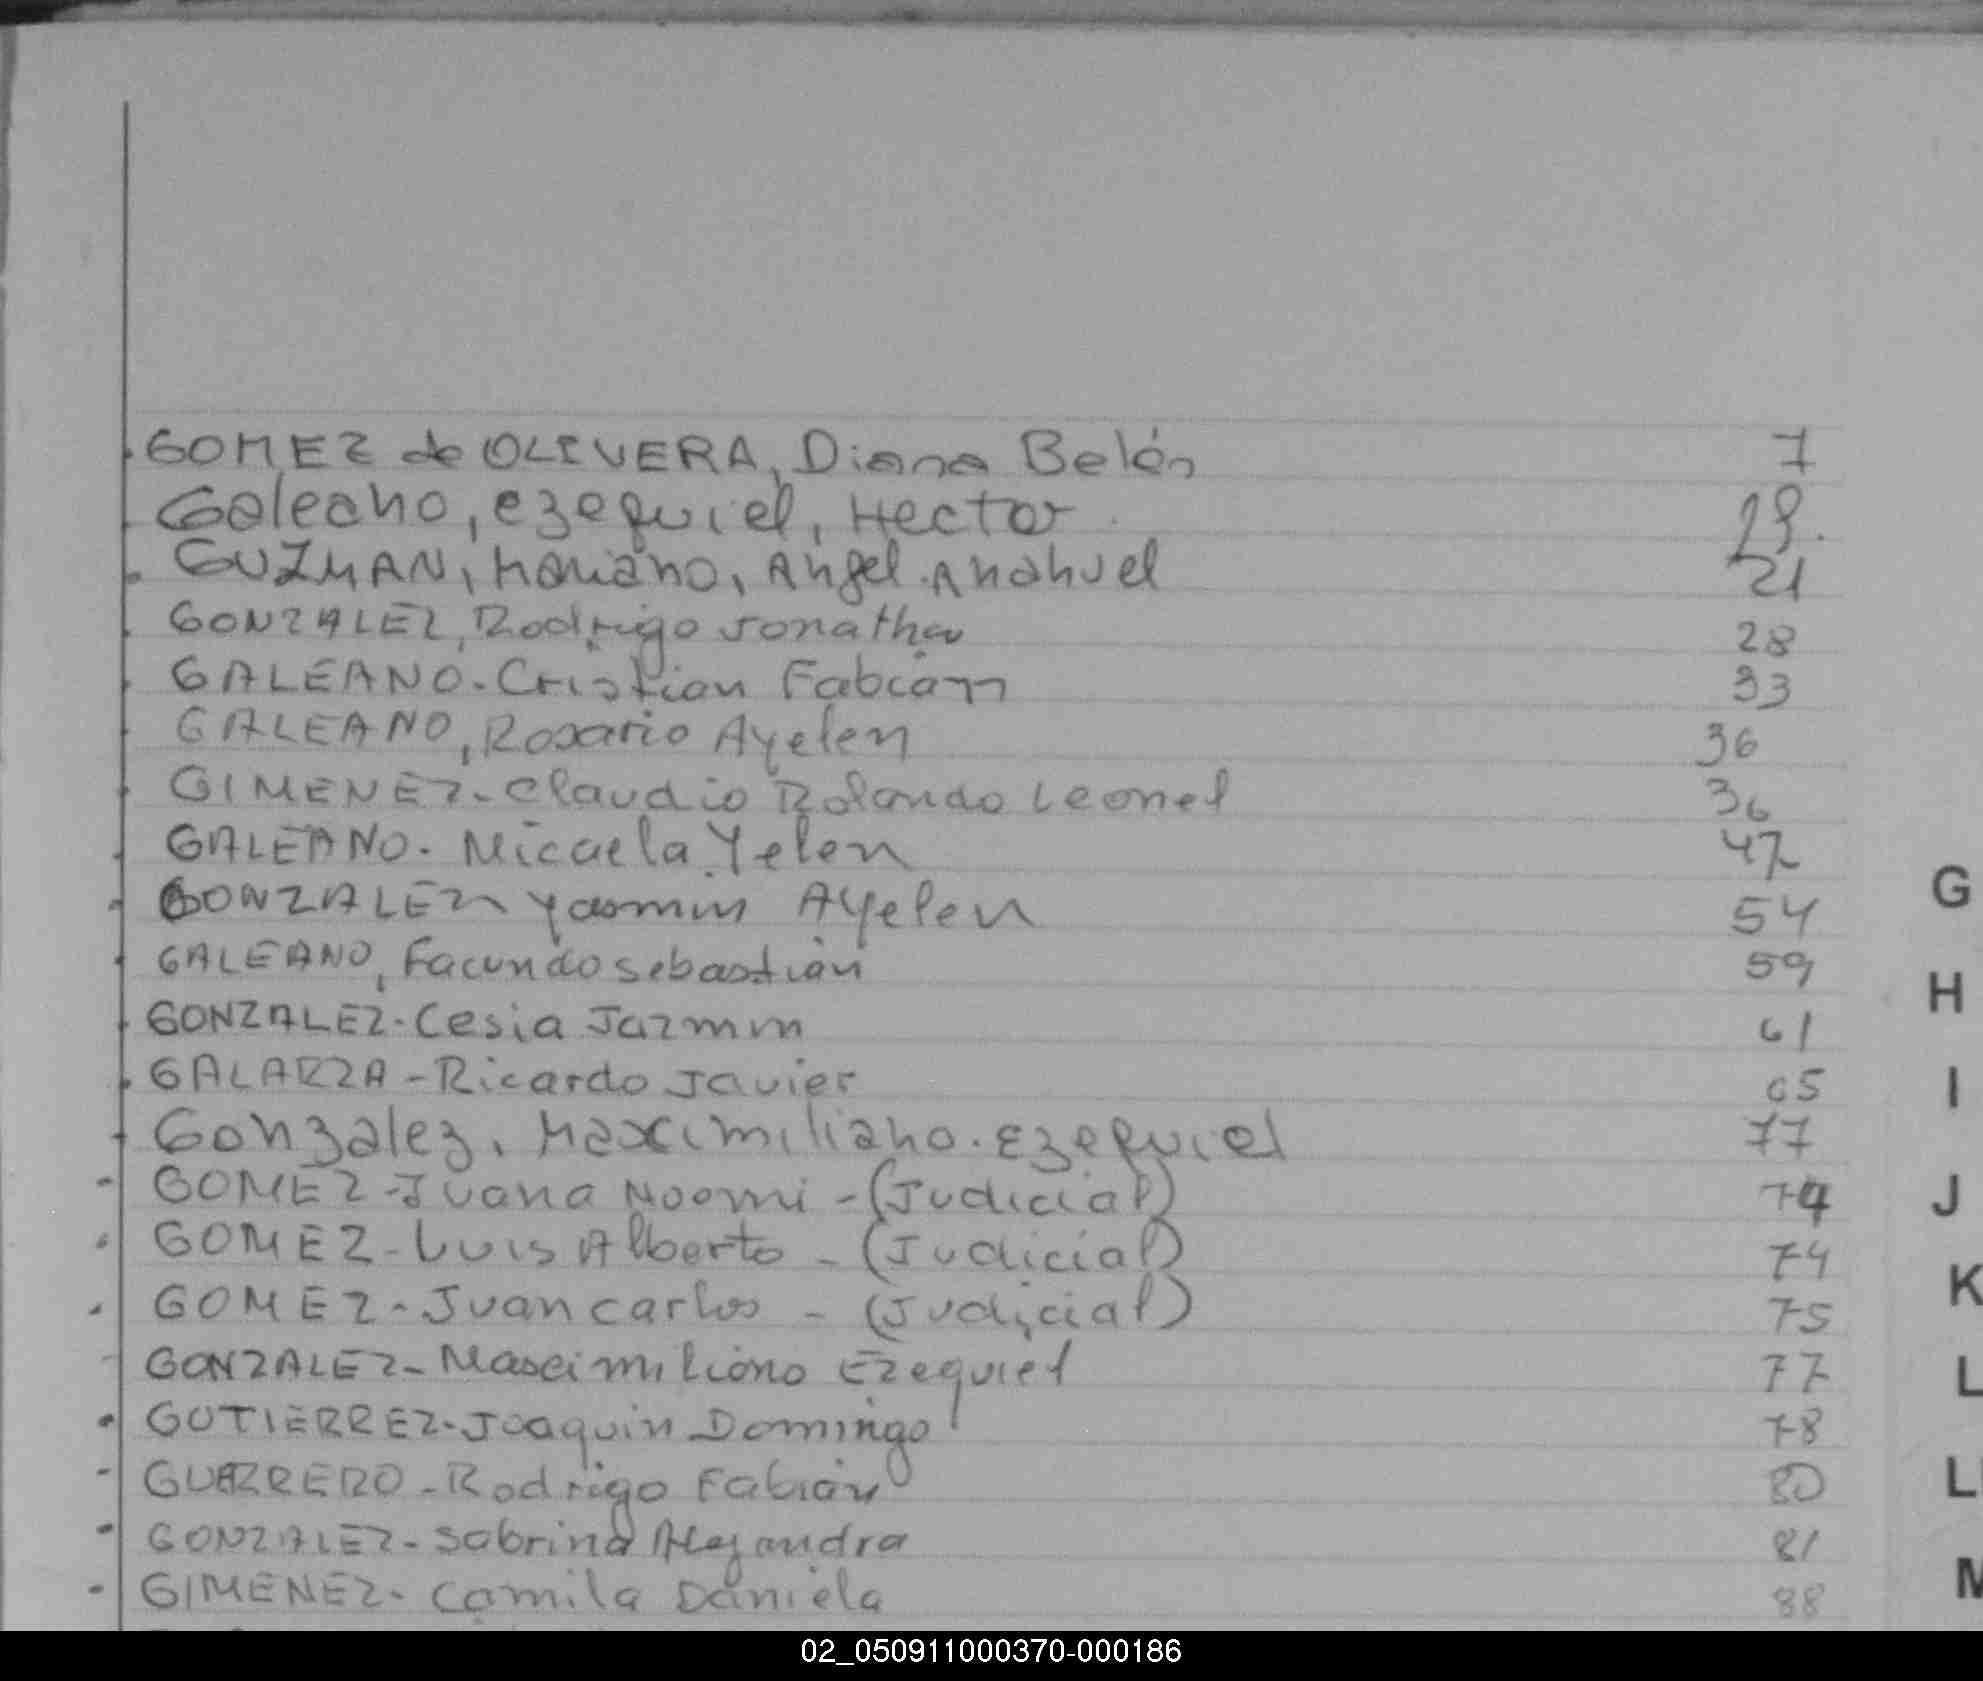 GOMEZ de OLIVERA, Diana Belén 7
Galeano, ezequiel, Hector 19.
GUZMAN, Mariano, Angel. Anahuel 21
GONZALEZ, Rodrigo Jonathan 28
GALEANO. Cristian Fabián 33
GALEANO, Rosario Ayelen 36
GIMENEZ - Claudio Rolando Leonel 36
GALEANO. Micaela Yelen 47
GONZALEZ Yasmin Ayelen 54
GALEANO, Facundo Sebastián 59
GONZALEZ. Cesia Jazmin 61
GALARZA - Ricardo Javier 65
Gonzalez. Maximiliano. Ezequiel 77
GOMEZ - Juana Noemi - (Judicial) 74
GOMEZ - Luis Alberto - (Judicial) 74
GOMEZ - Juan Carlos - (Judicial) 75
GONZALEZ - Maximiliano Ezequiel 77
GUTIERREZ - Joaquin Domingo 78
GUERRERO - Rodrigo Fabián 80
GONZALEZ - Sabrina Alejandra 81
GIMENEZ - Camila Daniela 88
G
H
I
J
K
L
M
02_050911000370-000186